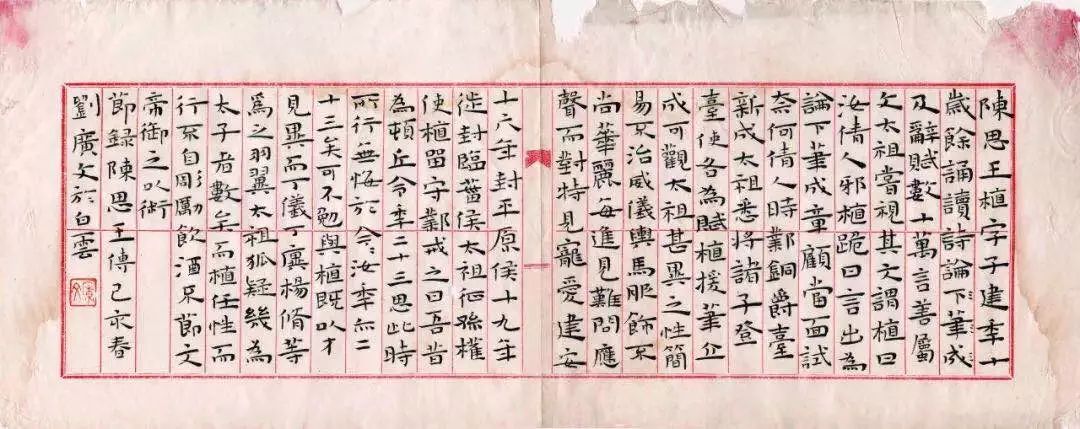 陳思王植字子建年十
歲餘誦讀詩論下筆成
及辭賦數十萬言善屬
文太祖嘗視其文謂植曰
汝倩人邪植跪曰言出為
論下筆成章顧當面試
奈何倩人時鄴銅爵臺
新成太祖悉將諸子登
臺使各為賦植援筆立
成可觀太祖甚異之性簡
易不治威儀輿馬服飾不
尚華麗每進見難問應
聲而對特見寵愛建安
十六年封平原侯十九年
徙封臨菑侯太祖征孫權
使植留守鄴戒之曰吾昔
為頓丘令年二十三思此時
所行無悔於今汝年亦二
十三矣可不勉與植既以才
見異而丁儀丁廙楊脩等
為之羽翼太祖狐疑幾為
太子者數矣而植任性而
行不自彫勵飲酒不節文
帝御之以術
節錄陳思王傳己亥春
劉廣文於白雲